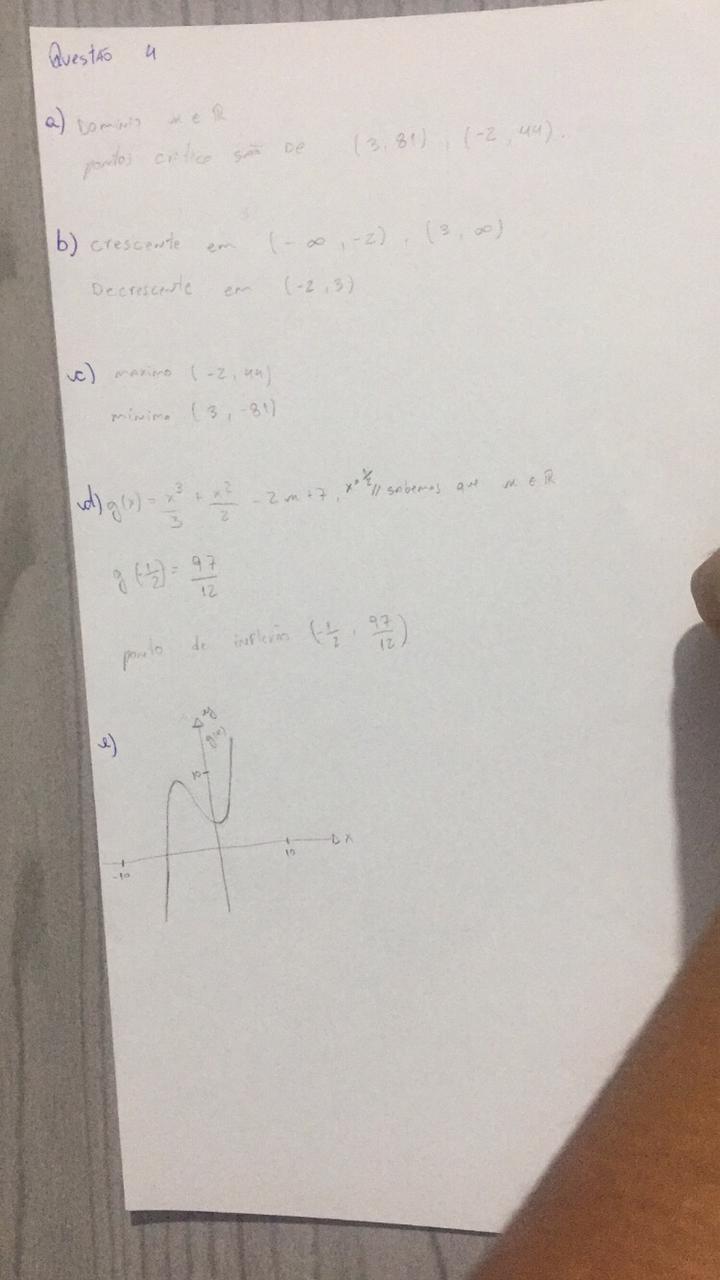 Questão 4
a) Dominio x ∈ ℝ
pontos critico são de (3,81), (-2,44).
b) crescente em (-∞,-2), (3,∞)
Decrescente em (-2,3)
c) maximo (-2,44)
minimo (3,-81)
d) g(x) = x³/3 + x²/2 - 2x+7, // sabemos que x ∈ ℝ
g(-1/2) = 97/12
ponto de inflexão (-1/2, 97/12)
e)
y
g(x)
10
-10 10 x